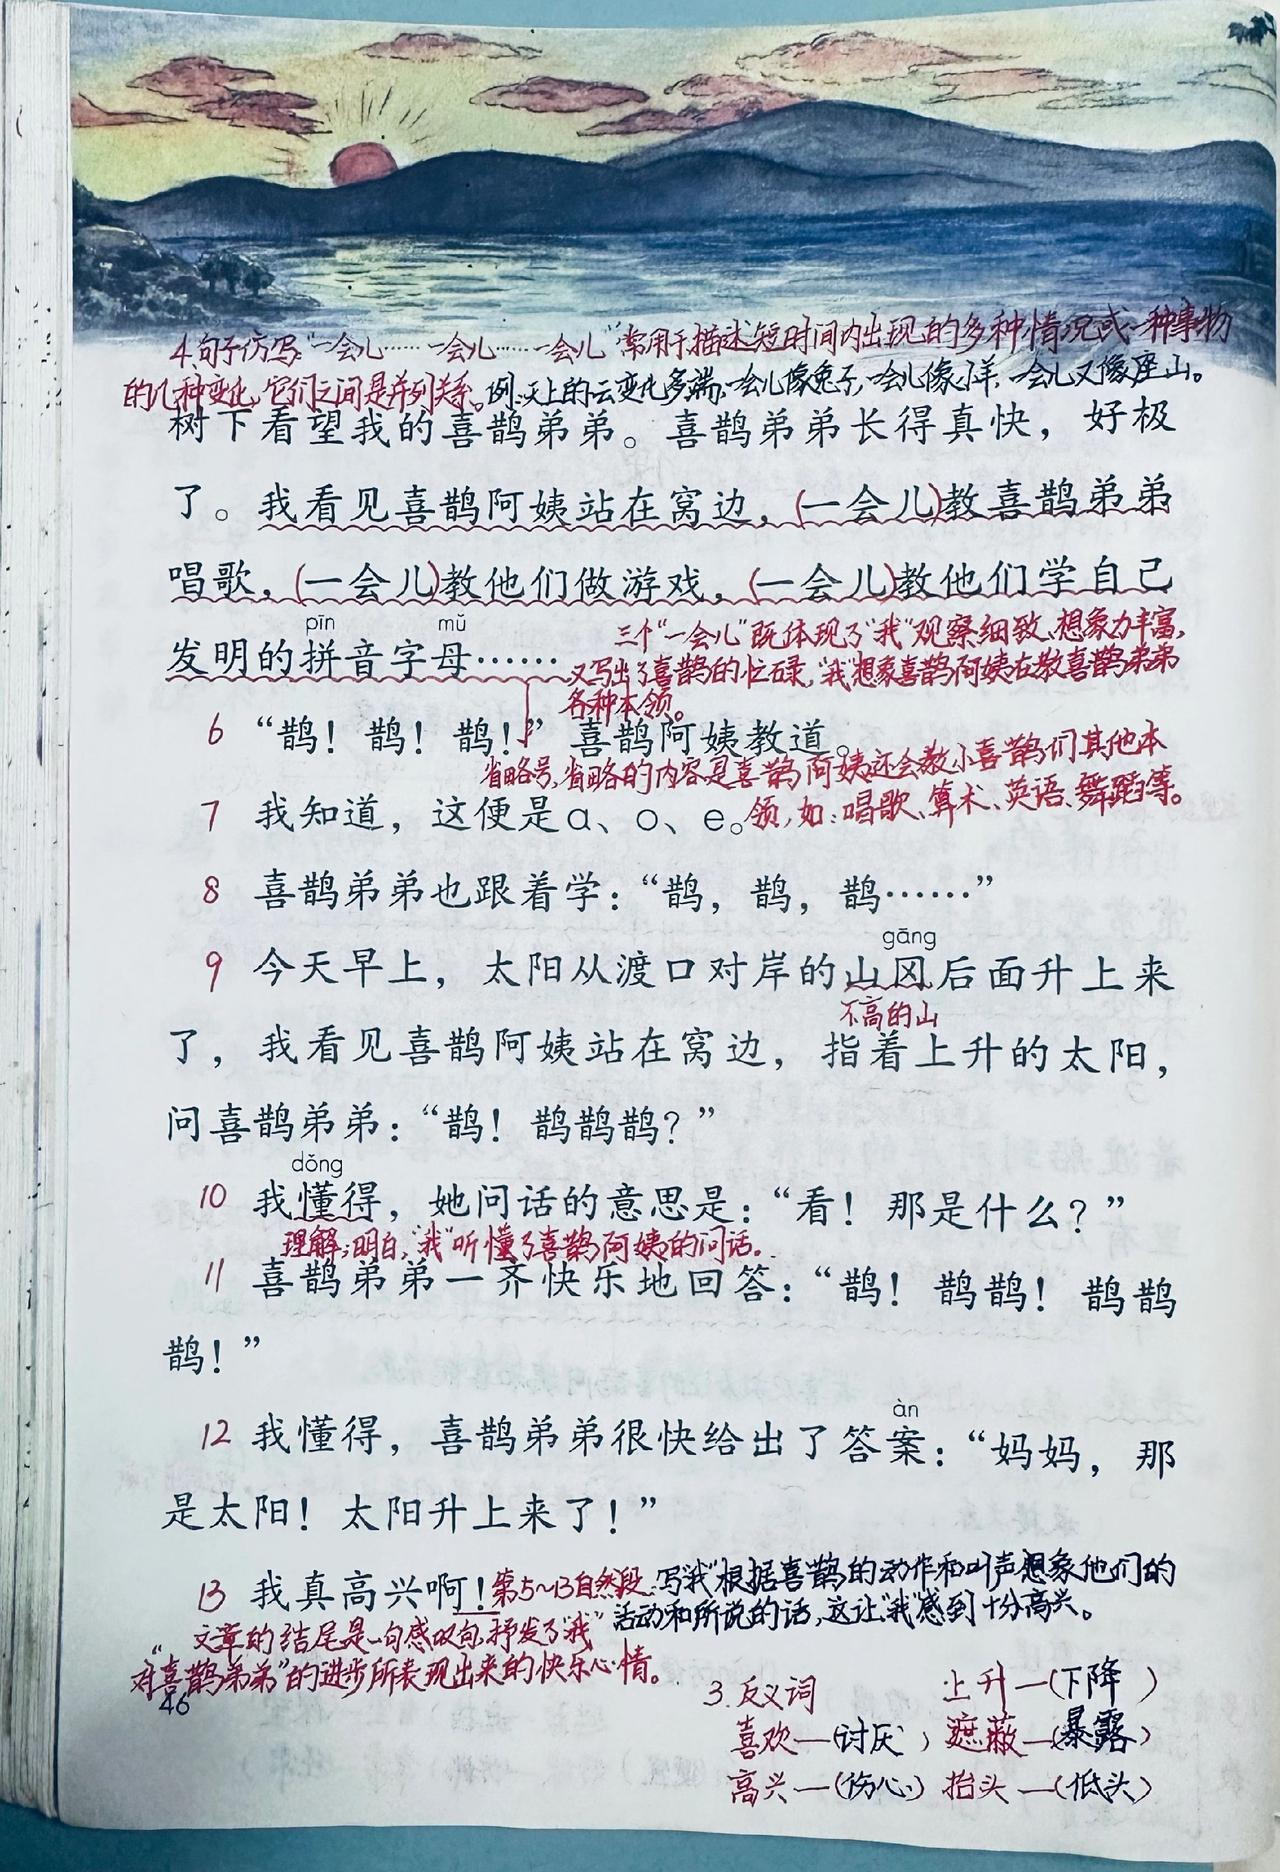 4.句子仿写:“一会儿……一会儿……一会儿”常用于描述短时间内出现的多种情况或一种事物
的几种变化,它们之间是并列关系。例:天上的云变化多端,一会儿像兔子,一会儿像小羊,一会儿又像座山。
树下看望我的喜鹊弟弟。喜鹊弟弟长得真快，好极
了。我看见喜鹊阿姨站在窝边，(一会儿)教喜鹊弟弟
唱歌，(一会儿)教他们做游戏，(一会儿)教他们学自己
pīn mǔ
发明的拼音字母……
三个“一会儿”既体现了“我”观察细致、想象力丰富,
又写出了喜鹊的忙碌,“我”想象喜鹊阿姨在教喜鹊弟弟
各种本领。
6 “鹊！鹊！鹊！”喜鹊阿姨教道。
省略号,省略的内容是喜鹊阿姨还会教小喜鹊们其他本
7 我知道，这便是ɑ、o、e。
领,如:唱歌、算术、英语、舞蹈等。
8 喜鹊弟弟也跟着学：“鹊，鹊，鹊……”
gāng
9 今天早上，太阳从渡口对岸的山冈后面升上来
不高的山
了，我看见喜鹊阿姨站在窝边，指着上升的太阳，
问喜鹊弟弟：“鹊！鹊鹊鹊？”
dǒng
10 我懂得，她问话的意思是：“看！那是什么？”
理解;明白,“我”听懂了喜鹊阿姨的问话。
11 喜鹊弟弟一齐快乐地回答：“鹊！鹊鹊！鹊鹊
鹊！”
àn
12 我懂得，喜鹊弟弟很快给出了答案：“妈妈，那
是太阳！太阳升上来了！”
13 我真高兴啊！
第5~13自然段:写“我”根据喜鹊的动作和叫声想象他们的
活动和所说的话,这让“我”感到十分高兴。
文章的结尾是一句感叹句,抒发了“我”
对“喜鹊弟弟”的进步所表现出来的快乐心情。
46
3.反义词 上升—(下降)
喜欢—(讨厌) 遮蔽—(暴露)
高兴—(伤心) 抬头—(低头)